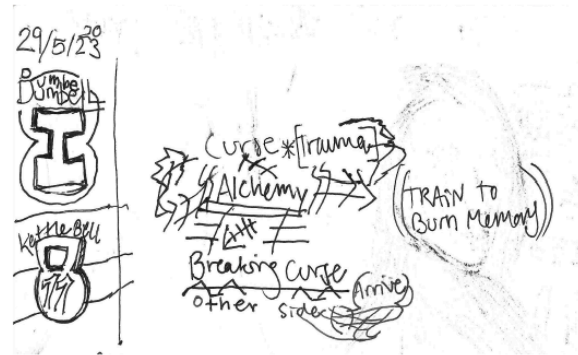 29/5/2023
Dumbell
Kettle Bell
Curse *[Trauma]
Alchemy
Breaking Curse
other side
Arrive
(TRAIN to
Burn Memory)